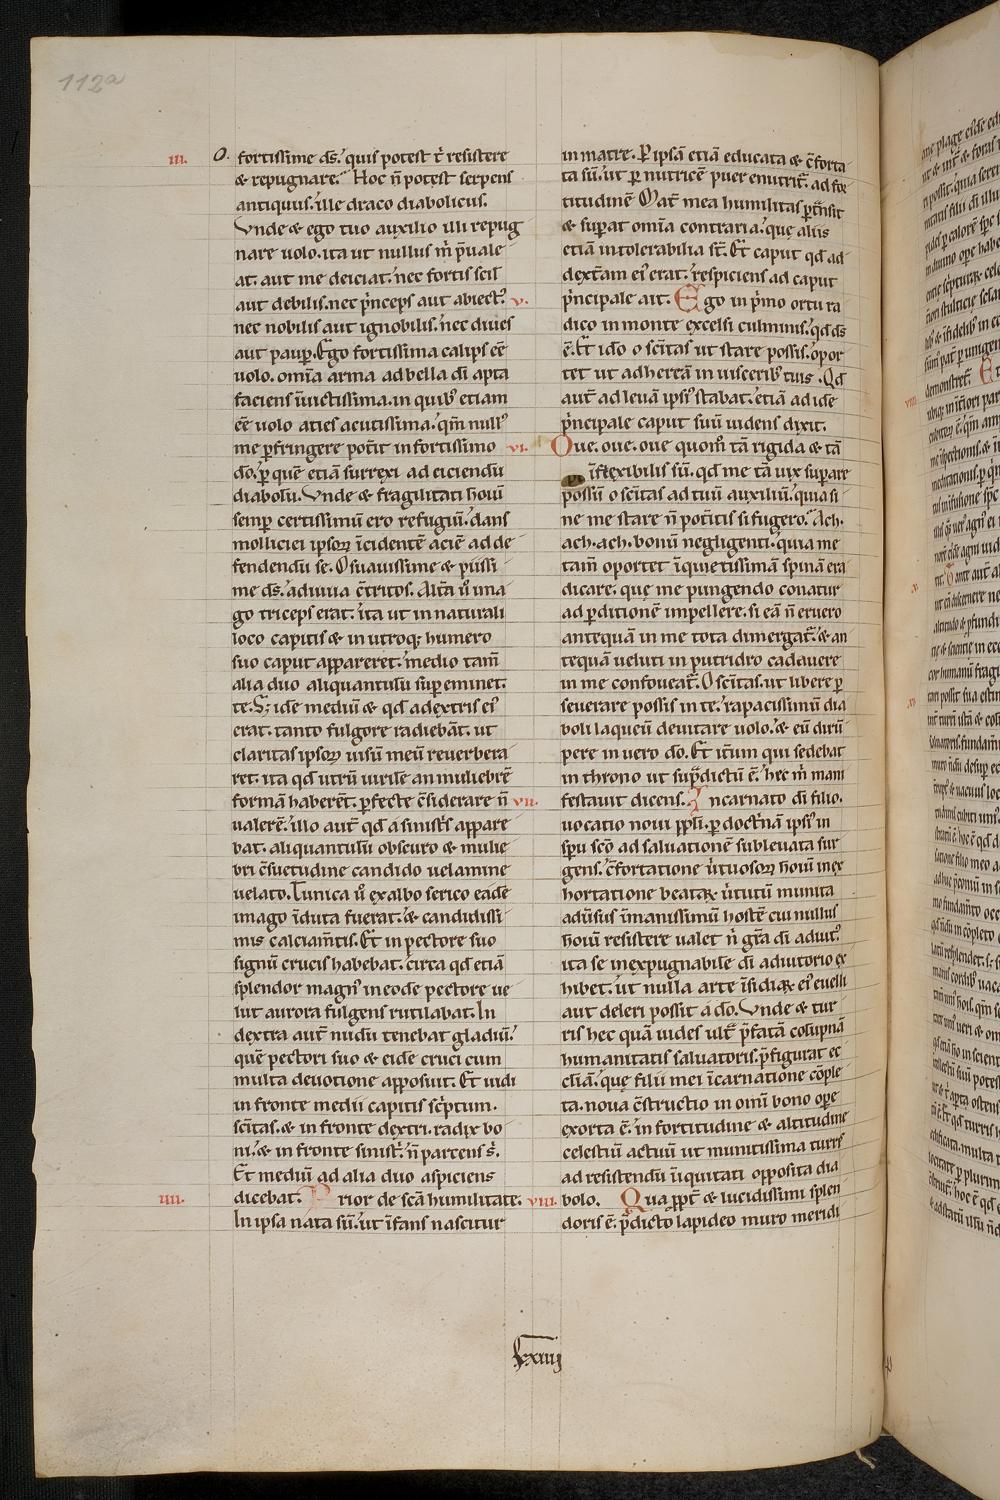 112a
III. O. fortissime ds. quis potest t̄ resistere
& repugnare. Hoc n̄ potest serpens
antiquus. ille draco diabolicus.
Vnde & ego tuo auxilio illi repug
nare uolo. ita ut nullus m̄ p̄uale
at. aut me deiciat. nec fortis seu
aut debilis. nec p̄nceps aut abiect᾿. V.
nec nobilis aut ignobilis. nec diues
aut paup̱. Ego fortissima calips ēē
uolo. om̄ia arma ad bella dī apta
faciens īuictissima. in quib᾿ etiam
ēē uolo acies acutissima. qm̄ null᾿
me p̱fringere pot̄it in fortissimo VI.
dō. p̱ quē etiā surrexi ad eiciendū
diabolū. Vnde & fragilitati hoīū
semp̱ certissimū ero refugiū. dans
molliciei ipsoꝝ īcidentē aciē ad de
fendendū se. O suauissime & piissi
me ds̄. adiuua c̄tritos. Alt̄a u᾿o ima
go triceps erat. ita ut in naturali
loco capitis & in utroqꝫ humero
suo caput appareret. medio tam̄
alia duo aliquantulū sup̱eminen
te. Sꝫ idē mediū & qd̄ a dextris ei᾿
erat. tanto fulgore radiebāt. ut
claritas ipsoꝝ uisū meū reuerbera
ret. ita qd̄ utrū uirilē an muliebrē
formā haberēt. p̱fecte c̄siderare n̄ VII.
ualerē. illo aut̄ qd̄ a sinist᾿s appare
bat. aliquantulū obscuro & mulie
bri c̄suetudine candido uelamine
uelato. Tunica u᾿o ex albo serico eadē
imago īduta fuerat. & candidissi
mis calciam̄tis. Et in pectore suo
signū crucis habebat. circa qd̄ etiā
splendor magn᾿ in eodē pectore ue
lut aurora fulgens rutilabat. In
dextra aut̄ nudū tenebat gladiū.
quē pectori suo & eidē cruci cum
multa deuotione apposuit. Et uidi
in fronte medii capitis sc̄ptum.
sc̄itas. & in fronte dextri. radix bo
ni. & in fronte sinist᾿. n̄ parcens s᾿.
Et mediū ad alia duo aspiciens
IIII. dicebat. Prior de sc̄ā humilitate. VIII.
In ipsa nata sū. ut īfans nascitur
in matre. P̱ ipsā etiā educata & c̄forta
ta sū. ut p̱ nutricē puer enutrit̄. ad for
titudinē. Mat̄ mea humilitas p̱t̄nsit
& sup̱at om̄ia contraria. que aliis
etiā intolerabilia st̄. Et caput qd̄ ad
dext̄am ei᾿ erat. respiciens ad caput
p̄ncipale ait. Ego in p̄mo ortu ra
dico in monte excelsi culminis. qd̄ ds̄
ē. Et idō o sc̄itas ut stare possis. opor
tet ut adhereā in uiscerib᾿ tuis. Qd̄
aut̄ ad leuā ipsi᾿ stabat. etiā ad idē
p̄ncipale caput suū uidens dixit.
Oue. oue. oue quom̄ tā rigida & tā
īflexibilis sū. qd̄ me tā uix sup̱are
possū o sc̄itas ad tuū auxiliū. quia si
ne me stare n̄ pot̄itis si fugero. Ach.
ach. ach. bonū negligenti. quia me
tam̄ oportet īquietissimā spinā era
dicare. que me pungendo conatur
ad p̱ditionē impellere. si eā n̄ eruero
antequā in me tota dimergat̄. & an
tequā ueluti in putrido cadauere
in me confoueat̄. O sc̄itas. ut libere p̱
seuerare possis in te. rapacissimū dia
boli laqueū deuitare uolo. & eū diru
pere in uero dō. Et it̄um qui sedebat
in throno ut sup̄dictū ē. hec m̄ mani
festauit dicens. Incarnato dī filio.
uocatio noui pp̄li. p̱ doct̄nā ipsi᾿ in
sp̄u sc̄o ad saluationē subleuata sur
gens. c̄fortatione u᾿tuosoꝝ hoīū in ex
hortatione beataꝝ u᾿tutū munita
adūsus īmanissimū hostē cui nullus
hoīū resistere ualet n᾿ gr̄a dī adiut᾿.
ita se inexpugnabilē dī adiutorio ex
hibet. ut nulla arte īsidiaꝝ ei᾿ euelli
aut deleri possit a dō. Vnde & tur
ris hec quā uides ult̄ p̄fatā colūpnā
humanitatis saluatoris. p̄figurat ec
cl̄iā. que filii mei īcarnatione cōple
ta. noua c̄structio in om̄i bono ope
exorta ē. in fortitudine & altitudine
celestiū actuū ut munitissima turris
ad resistendū iniquitati opposita dia
bolo. Qua ppt̄ & lucidissimi splen
doris ē. p̄dicto lapideo muro meridi